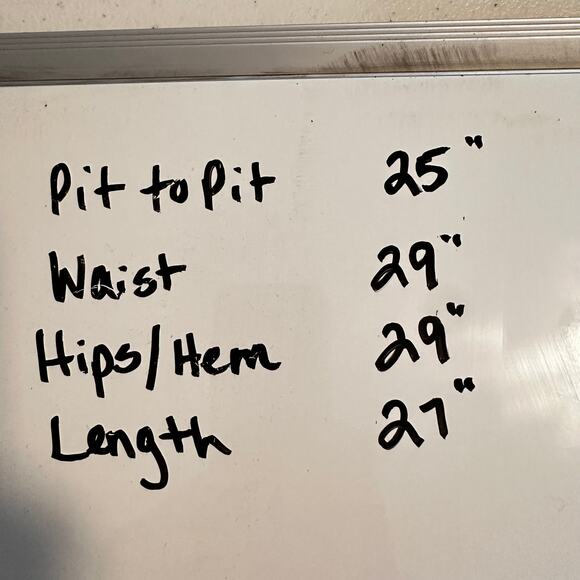 Pit to Pit 25"
Waist 29"
Hips/Hem 29"
Length 27"